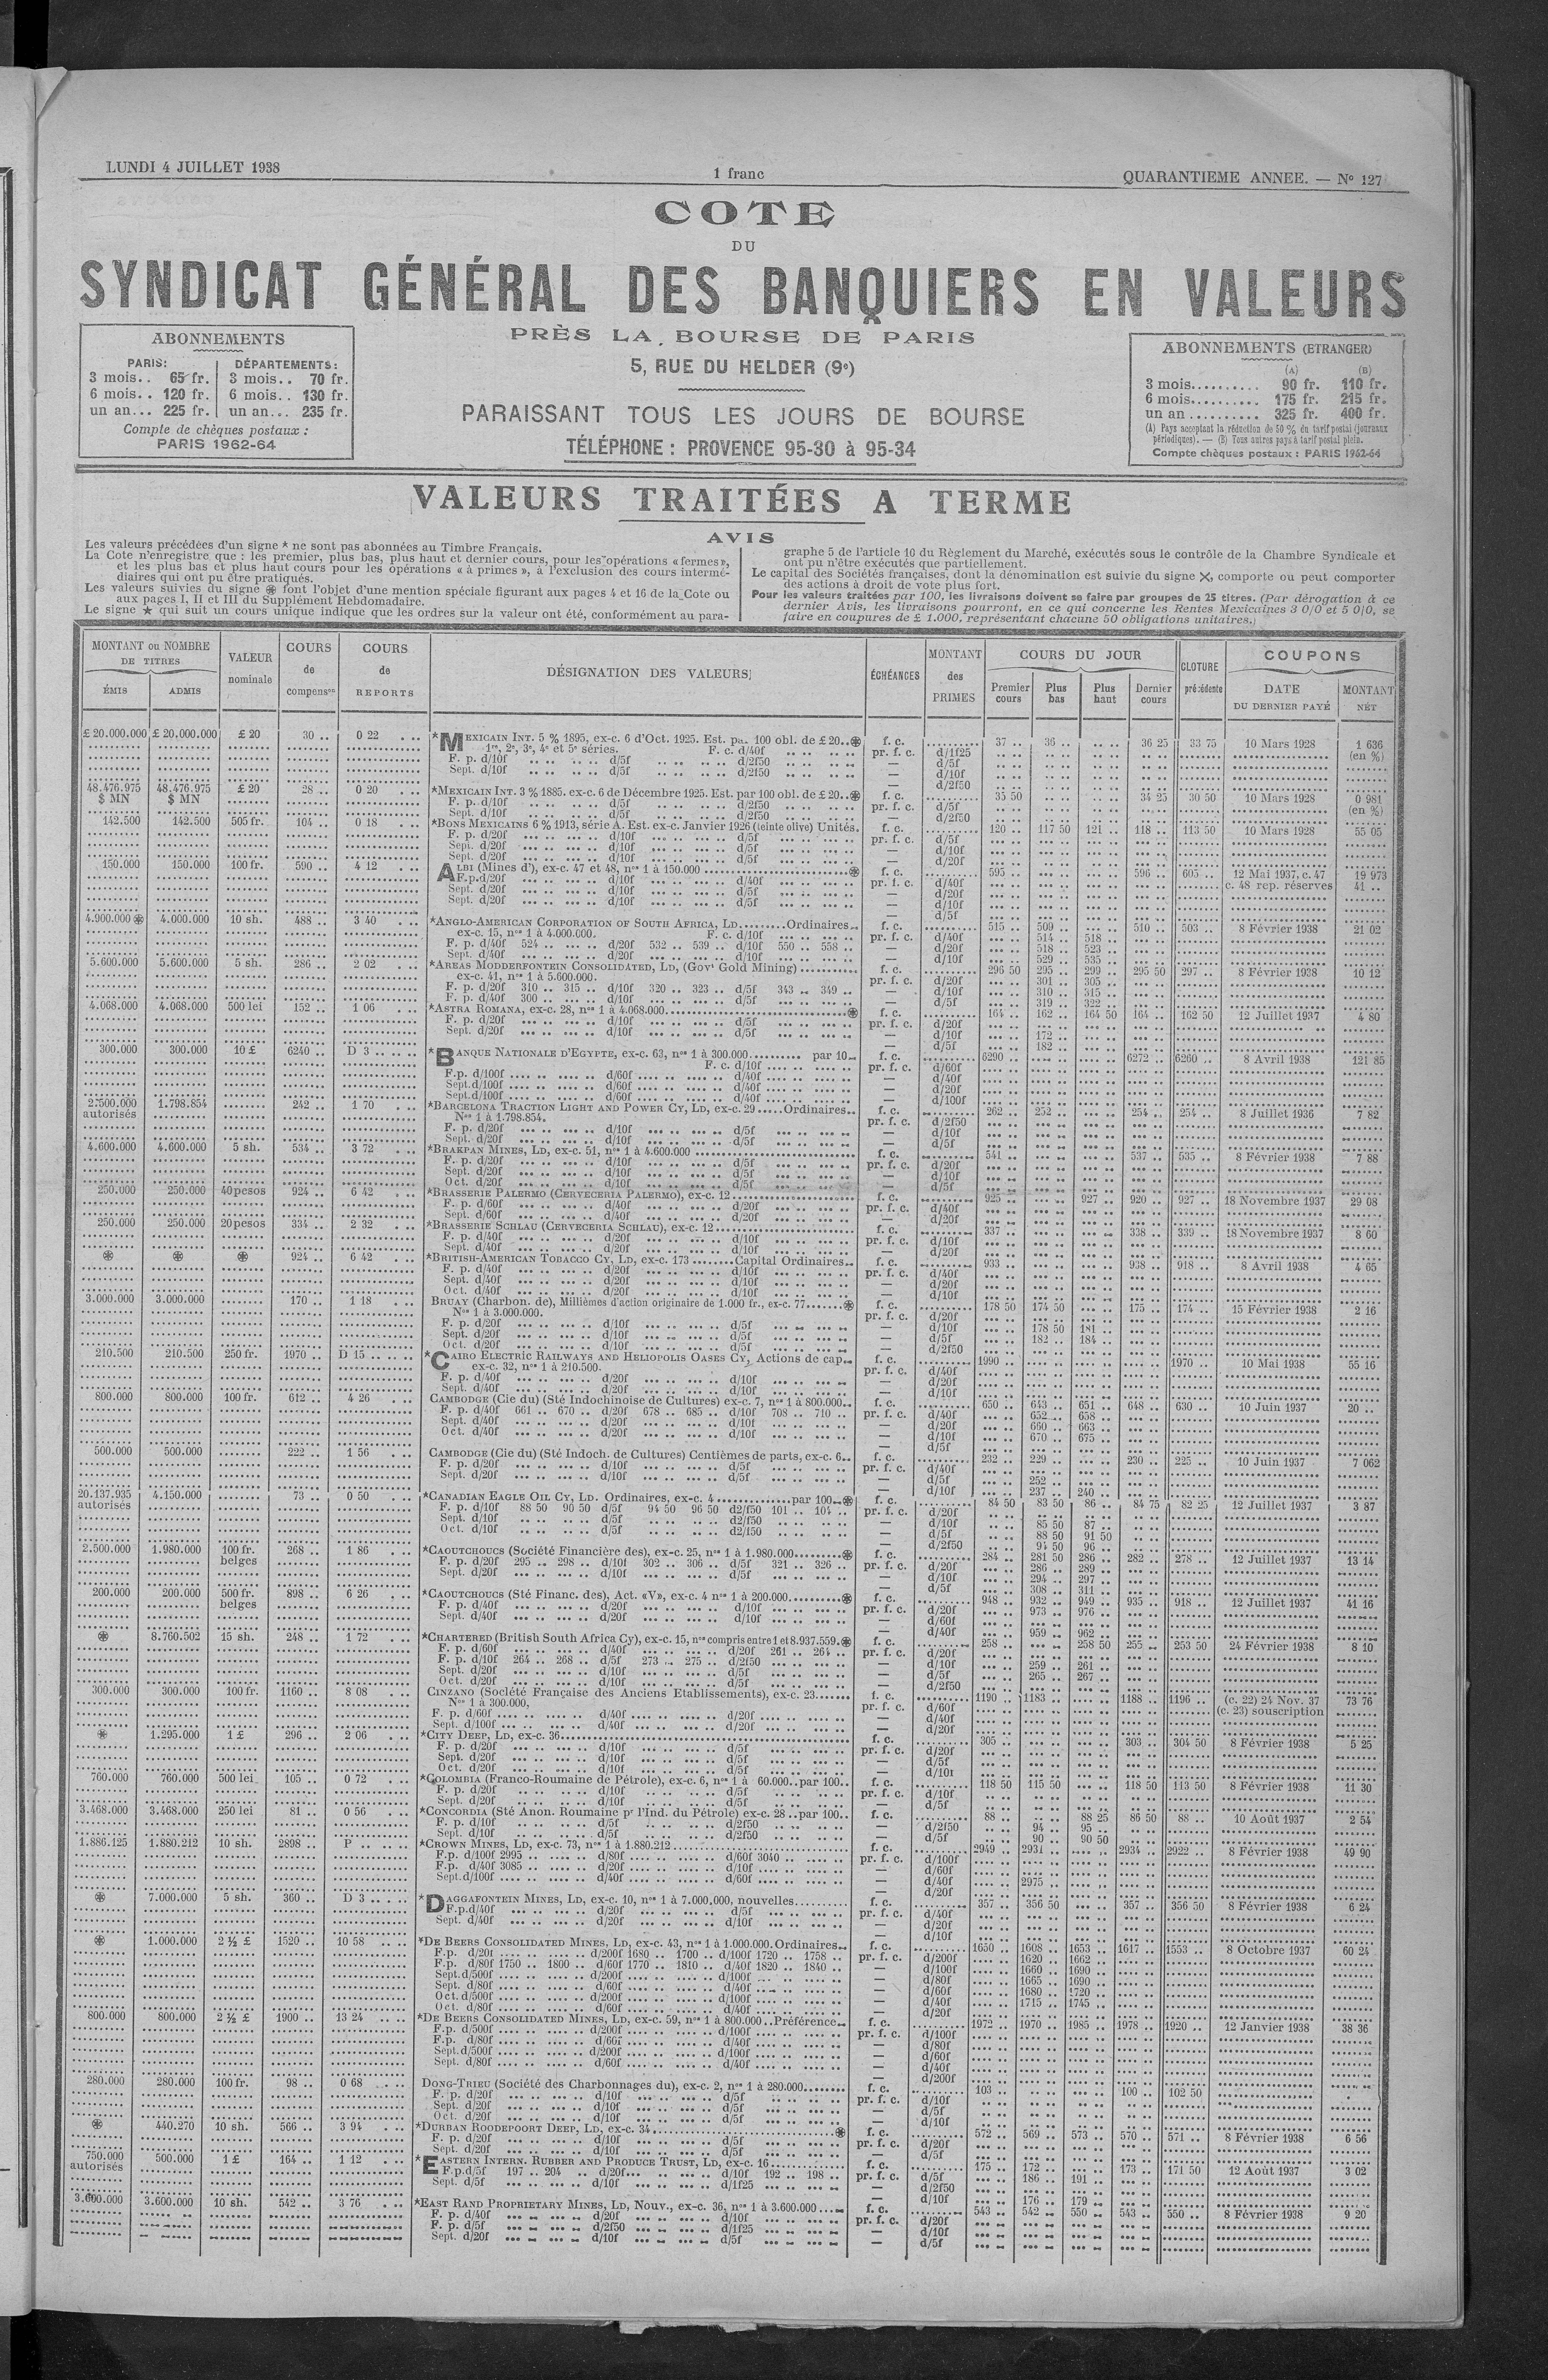 LUNDI 4 JUILLET 1938
1 franc
QUARANTIEME ANNEE. — No 127
COTE
DU
SYNDICAT GÉNÉRAL DES BANQUIERS EN VALEURS
PRÈS LA BOURSE DE PARIS
5, RUE DU HELDER (9e)
PARAISSANT TOUS LES JOURS DE BOURSE
TÉLÉPHONE : PROVENCE 95-30 à 95-34
ABONNEMENTS
PARIS: DÉPARTEMENTS:
3 mois.. 65 fr. 3 mois.. 70 fr.
6 mois.. 120 fr. 6 mois.. 130 fr.
un an... 225 fr. un an... 235 fr.
Compte de chèques postaux :
PARIS 1962-64
ABONNEMENTS (ETRANGER)
(A) (B)
3 mois.......... 90 fr. 110 fr.
6 mois.......... 175 fr. 215 fr.
un an .......... 325 fr. 400 fr.
(A) Pays acceptant la réduction de 50 % du tarif postal (journaux
périodiques). — (B) Tous autres pays à tarif postal plein.
Compte chèques postaux : PARIS 1962-64
VALEURS TRAITÉES A TERME
AVIS
Les valeurs précédées d'un signe * ne sont pas abonnées au Timbre Français.
La Cote n'enregistre que : les premier, plus bas, plus haut et dernier cours, pour les opérations « fermes »,
et les plus bas et plus haut cours pour les opérations « à primes », à l'exclusion des cours intermé-
diaires qui ont pu être pratiqués.
Les valeurs suivies du signe ⊛ font l'objet d'une mention spéciale figurant aux pages 4 et 16 de la Cote ou
aux pages I, II et III du Supplément Hebdomadaire.
Le signe ★ qui suit un cours unique indique que les ordres sur la valeur ont été, conformément au para-
graphe 5 de l'article 10 du Règlement du Marché, exécutés sous le contrôle de la Chambre Syndicale et
ont pu n'être exécutés que partiellement.
Le capital des Sociétés françaises, dont la dénomination est suivie du signe ✕, comporte ou peut comporter
des actions à droit de vote plus fort.
Pour les valeurs traitées par 100, les livraisons doivent se faire par groupes de 25 titres. (Par dérogation à ce
dernier Avis, les livraisons pourront, en ce qui concerne les Rentes Mexicaines 3 0/0 et 5 0/0, se
faire en coupures de £ 1.000, représentant chacune 50 obligations unitaires.)
MONTANT ou NOMBRE DE TITRES
ÉMIS ADMIS
VALEUR nominale
COURS de compenson
COURS de REPORTS
DÉSIGNATION DES VALEURS
ÉCHÉANCES
MONTANT des PRIMES
COURS DU JOUR
Premier cours Plus bas Plus haut Dernier cours
CLOTURE précédente
COUPONS
DATE DU DERNIER PAYÉ
MONTANT NET
£ 20.000.000 £ 20.000.000 £ 20 30 .. 0 22 *MEXICAIN INT. 5 % 1895, ex-c. 6 d'Oct. 1925. Est. pa. 100 obl. de £ 20..⊛ f. c. 37 .. 36 .. 36 25 33 75 10 Mars 1928 1 636
1re, 2e, 3e, 4e et 5e séries. F. c. d/40f pr. f. c. d/1f25 (en %)
F. p. d/10f d/5f d/2f50 — d/5f
Sept. d/10f d/5f d/2f50 — d/10f
— d/2f50
48.476.975 48.476.975 £ 20 28 .. 0 20 *MEXICAIN INT. 3 % 1885. ex-c. 6 de Décembre 1925. Est. par 100 obl. de £ 20..⊛ f. c. 35 50 34 25 30 50 10 Mars 1928 0 981
$ MN $ MN F. p. d/10f d/5f d/2f50 pr. f. c. d/5f (en %)
Sept. d/10f d/5f d/2f50 — d/2f50
142.500 142.500 505 fr. 104 .. 0 18 *BONS MEXICAINS 6 % 1913, série A. Est. ex-c. Janvier 1926 (teinte olive) Unités. f. c. 120 .. 117 50 121 .. 118 .. 113 50 10 Mars 1928 55 05
F. p. d/20f d/10f d/5f pr. f. c. d/5f
Sept. d/20f d/10f d/5f — d/10f
Sept. d/20f d/10f d/5f — d/20f
150.000 150.000 100 fr. 590 .. 4 12 ALBI (Mines d'), ex-c. 47 et 48, nos 1 à 150.000 ⊛ f. c. 595 .. 596 .. 605 .. 12 Mai 1937, c. 47 19 973
F.p.d/20f d/10f d/40f pr. f. c. d/40f c. 48 rep. réserves 41 ..
Sept. d/20f d/10f d/5f — d/20f
Sept. d/20f d/10f d/5f — d/10f
— d/5f
4.900.000 ⊛ 4.000.000 10 sh. 488 .. 3 40 *ANGLO-AMERICAN CORPORATION OF SOUTH AFRICA, LD.........Ordinaires.. f. c. 515 .. 509 .. 510 .. 503 .. 8 Février 1938 21 02
ex-c. 15, nos 1 à 4.000.000. F. c. d/10f pr. f. c. d/40f 514 .. 518 ..
F. p. d/40f 524 .. d/20f 532 .. 539 .. d/10f 550 .. 558 .. — d/20f 518 .. 523 ..
Sept. d/40f d/20f d/10f — d/10f 529 .. 535 ..
5.600.000 5.600.000 5 sh. 286 .. 2 02 *AREAS MODDERFONTEIN CONSOLIDATED, LD, (Govt Gold Mining) f. c. 296 50 295 .. 299 .. 295 50 297 .. 8 Février 1938 10 12
ex-c. 41, nos 1 à 5.600.000. pr. f. c. d/20f 301 .. 305 ..
F. p. d/20f 310 .. 315 .. d/10f 320 .. 323 .. d/5f 343 .. 349 .. — d/10f 310 .. 315 ..
F. p. d/40f 300 .. d/10f d/5f — d/5f 319 .. 322 ..
4.068.000 4.068.000 500 lei 152 .. 1 06 *ASTRA ROMANA, ex-c. 28, nos 1 à 4.068.000 ⊛ f. c. 164 .. 162 .. 164 50 164 .. 162 50 12 Juillet 1937 4 80
F. p. d/20f d/10f d/5f pr. f. c. d/20f
Sept. d/20f d/10f d/5f — d/10f 172 ..
— d/5f 182 ..
300.000 300.000 10 £ 6240 .. D 3 .. *BANQUE NATIONALE D'EGYPTE, ex-c. 63, nos 1 à 300.000 par 10.. f. c. 6290 .. 6272 .. 6260 .. 8 Avril 1938 121 85
F. c. d/10f pr. f. c. d/60f
F.p. d/100f d/60f d/40f — d/40f
Sept.d/100f d/60f d/40f — d/20f
Sept.d/100f d/60f d/40f — d/100f
2.500.000 1.798.854 242 .. 1 70 *BARCELONA TRACTION LIGHT AND POWER CY, LD, ex-c. 29.....Ordinaires.. f. c. 262 .. 252 .. 254 .. 254 .. 8 Juillet 1936 7 82
autorisés Nos 1 à 1.798.854. pr. f. c. d/2f50
F. p. d/20f d/10f d/5f — d/10f
Sept. d/20f d/10f d/5f — d/5f
4.600.000 4.600.000 5 sh. 534 .. 3 72 *BRAKPAN MINES, LD, ex-c. 51, nos 1 à 4.600.000 f. c. 541 .. 537 .. 535 .. 8 Février 1938 7 88
F. p. d/20f d/10f d/5f pr. f. c. d/20f
Sept. d/20f d/10f d/5f — d/10f
Oct. d/20f d/10f d/5f — d/5f
250.000 250.000 40 pesos 924 .. 6 42 *BRASSERIE PALERMO (CERVECERIA PALERMO), ex-c. 12 f. c. 925 .. 927 .. 920 .. 927 .. 18 Novembre 1937 29 08
F. p. d/60f d/40f d/20f pr. f. c. d/40f
Sept. d/60f d/40f d/20f — d/20f
250.000 250.000 20 pesos 334 .. 2 32 *BRASSERIE SCHLAU (CERVECERIA SCHLAU), ex-c. 12 f. c. 337 .. 338 .. 339 .. 18 Novembre 1937 8 60
F. p. d/40f d/20f d/10f pr. f. c. d/10f
Sept. d/40f d/20f d/10f — d/20f
⊛ ⊛ ⊛ 924 .. 6 42 *BRITISH-AMERICAN TOBACCO CY, LD, ex-c. 173........Capital Ordinaires.. f. c. 933 .. 938 .. 918 .. 8 Avril 1938 4 65
F. p. d/40f d/20f d/10f pr. f. c. d/40f
Sept. d/40f d/20f d/10f — d/20f
Oct. d/40f d/20f d/10f — d/10f
3.000.000 3.000.000 170 .. 1 18 BRUAY (Charbon. de), Millièmes d'action originaire de 1.000 fr., ex-c. 77.......⊛ f. c. 178 50 174 50 175 .. 174 .. 15 Février 1938 2 16
Nos 1 à 3.000.000. pr. f. c. d/20f
F. p. d/20f d/10f d/5f — d/10f 178 50 181 ..
Sept. d/20f d/10f d/5f — d/5f 182 .. 184 ..
Oct. d/20f d/10f d/5f — d/2f50
210.500 210.500 250 fr. 1970 .. D 15 .. *CAIRO ELECTRIC RAILWAYS AND HELIOPOLIS OASES CY, Actions de cap.. f. c. 1990 .. 1970 .. 10 Mai 1938 55 16
ex-c. 32, nos 1 à 210.500. pr. f. c. d/40f
F. p. d/40f d/20f d/10f — d/20f
Sept. d/40f d/20f d/10f — d/10f
800.000 800.000 100 fr. 612 .. 4 26 CAMBODGE (Cie du) (Sté Indochinoise de Cultures) ex-c. 7, nos 1 à 800.000.. f. c. 650 .. 643 .. 651 .. 648 .. 630 .. 10 Juin 1937 20 ..
F. p. d/40f 661 .. 670 .. d/20f 678 .. 685 .. d/10f 708 .. 710 .. pr. f. c. d/40f 652 .. 658 ..
Sept. d/40f d/20f d/10f — d/20f 660 .. 663 ..
Oct. d/40f d/20f d/10f — d/10f 670 .. 675 ..
— d/5f
500.000 500.000 222 .. 1 56 CAMBODGE (Cie du) (Sté Indoch. de Cultures) Centièmes de parts, ex-c. 6.. f. c. 232 .. 229 .. 230 .. 225 .. 10 Juin 1937 7 062
F. p. d/20f d/10f d/5f pr. f. c. d/40f
Sept. d/20f d/10f d/5f — d/5f 252 ..
— d/10f 237 .. 240 ..
20.137.935 4.150.000 73 .. 0 50 *CANADIAN EAGLE OIL CY, LD. Ordinaires, ex-c. 4 par 100..⊛ f. c. 84 50 83 50 86 .. 84 75 82 25 12 Juillet 1937 3 87
autorisés F. p. d/10f 88 50 90 50 d/5f 94 50 96 50 d2/f50 101 .. 104 .. pr. f. c. d/20f
Sept. d/10f d/5f d2/f50 — d/10f 85 50 87 ..
Oct. d/10f d/5f d2/f50 — d/5f 88 50 91 50
— d/2f50 94 50 96 ..
2.500.000 1.980.000 100 fr. 268 .. 1 86 *CAOUTCHOUCS (Société Financière des), ex-c. 25, nos 1 à 1.980.000 ⊛ f. c. 284 .. 281 50 286 .. 282 .. 278 .. 12 Juillet 1937 13 14
belges F. p. d/20f 295 .. 298 .. d/10f 302 .. 306 .. d/5f 321 .. 326 .. pr. f. c. d/20f 286 .. 289 ..
Sept. d/20f d/10f d/5f — d/10f 294 .. 297 ..
— d/5f 308 .. 311 ..
200.000 200.000 500 fr. 898 .. 6 26 *CAOUTCHOUCS (Sté Financ. des), Act. «V», ex-c. 4 nos 1 à 200.000 ⊛ f. c. 948 .. 932 .. 949 .. 935 .. 918 .. 12 Juillet 1937 41 16
belges F. p. d/40f d/20f d/10f pr. f. c. d/20f 973 .. 976 ..
Sept. d/40f d/20f d/10f — d/60f
— d/40f 959 .. 962 ..
⊛ 8.760.502 15 sh. 248 .. 1 72 *CHARTERED (British South Africa Cy), ex-c. 15, nos compris entre 1 et 8.937.559.⊛ f. c. 258 .. 258 50 255 .. 253 50 24 Février 1938 8 10
F. p. d/60f d/40f d/20f 261 .. 264 .. pr. f. c. d/20f
F. p. d/10f 264 .. 268 .. d/5f 273 .. 275 .. d/2f50 — d/10f 259 .. 261 ..
Sept. d/20f d/10f d/5f — d/5f 265 .. 267 ..
Oct. d/20f d/10f d/5f — d/2f50
300.000 300.000 100 fr. 1160 .. 8 08 CINZANO (Société Française des Anciens Etablissements), ex-c. 23 f. c. 1190 .. 1183 .. 1188 .. 1196 .. (c. 22) 24 Nov. 37 73 76
Nos 1 à 300.000, pr. f. c. d/60f (c. 23) souscription
F. p. d/60f d/40f d/20f — d/40f
Sept. d/100f d/40f d/20f — d/20f
⊛ 1.295.000 1 £ 296 .. 2 06 *CITY DEEP, LD, ex-c. 36 f. c. 305 .. 303 .. 304 50 8 Février 1938 5 25
F. p. d/20f d/10f d/5f pr. f. c. d/20f
Sept. d/20f d/10f d/5f — d/5f
Oct. d/20f d/10f d/5f — d/10f
760.000 760.000 500 lei 105 .. 0 72 *COLOMBIA (Franco-Roumaine de Pétrole), ex-c. 6, nos 1 à 60.000..par 100.. f. c. 118 50 115 50 118 50 113 50 8 Février 1938 11 30
F. p. d/20f d/10f d/5f pr. f. c. d/10f
Sept. d/20f d/10f d/5f — d/5f
3.468.000 3.468.000 250 lei 81 .. 0 56 *CONCORDIA (Sté Anon. Roumaine pr l'Ind. du Pétrole) ex-c. 28..par 100.. f. c. 88 .. 88 25 86 50 88 .. 10 Août 1937 2 54
F. p. d/10f d/5f d/2f50 — d/2f50 94 .. 95 ..
Sept. d/10f d/5f d/2f50 — d/5f 90 .. 90 50
1.886.125 1.880.212 10 sh. 2898 .. P .. *CROWN MINES, LD, ex-c. 73, nos 1 à 1.880.212 f. c. 2949 .. 2931 .. 2934 .. 2922 .. 8 Février 1938 49 90
F.p. d/100f 2995 .. d/80f d/60f 3040 .. pr. f. c. d/100f
F.p. d/40f 3085 .. d/20f d/10f — d/60f
Sept.d/100f d/40f d/60f — d/40f 2975 ..
— d/20f
⊛ 7.000.000 5 sh. 360 .. D 3 .. *DAGGAFONTEIN MINES, LD, ex-c. 10, nos 1 à 7.000,000, nouvelles f. c. 357 .. 356 50 357 .. 356 50 8 Février 1938 6 24
F.p.d/40f d/20f d/5f pr. f. c. d/40f
Sept. d/40f d/20f d/10f — d/20f
— d/10f
⊛ 1.000.000 2 ½ £ 1520 .. 10 58 *DE BEERS CONSOLIDATED MINES, LD, ex-c. 43, nos 1 à 1.000.000.Ordinaires.. f. c. 1650 .. 1608 .. 1653 .. 1617 .. 1553 .. 8 Octobre 1937 60 24
F.p. d/20f d/200f 1680 .. 1700 .. d/100f 1720 .. 1758 .. pr. f. c. d/200f 1620 .. 1662 ..
F.p. d/80f 1750 .. 1800 .. d/60f 1770 .. 1810 .. d/40f 1820 .. 1840 .. — d/100f 1660 .. 1690 ..
Sept.d/500f d/200f d/100f — d/80f 1665 .. 1690 ..
Sept. d/80f d/60f d/40f — d/60f 1680 .. 1720 ..
Oct. d/500f d/200f d/100f — d/40f 1715 .. 1745 ..
Oct. d/80f d/60f d/40f — d/20f
800.000 800.000 2 ½ £ 1900 .. 13 24 *DE BEERS CONSOLIDATED MINES, LD, ex-c. 59, nos 1 à 800.000..Préférence.. f. c. 1972 .. 1970 .. 1985 .. 1978 .. 1920 .. 12 Janvier 1938 38 36
F.p. d/500f d/200f d/100f pr. f. c. d/100f
F.p. d/80f d/60f d/40f — d/80f
Sept.d/500f d/200f d/100f — d/60f
Sept. d/80f d/60f d/40f — d/40f
— d/200f
280.000 280.000 100 fr. 98 .. 0 68 DONG-TRIEU (Société des Charbonnages du), ex-c. 2, nos 1 à 280.000 f. c. 103 .. 100 .. 102 50
F. p. d/20f d/10f d/5f pr. f. c. d/10f
Sept. d/20f d/10f d/5f — d/5f
Oct. d/20f d/10f d/5f — d/10f
⊛ 440.270 10 sh. 566 .. 3 94 *DURBAN ROODEPOORT DEEP, LD, ex-c. 34 ⊛ f. c. 572 .. 569 .. 573 .. 570 .. 571 .. 8 Février 1938 6 56
F. p. d/20f d/10f d/5f pr. f. c. d/20f
Sept. d/20f d/10f d/5f — d/5f
750.000 500.000 1 £ 164 .. 1 12 *EASTERN INTERN. RUBBER AND PRODUCE TRUST, LD, ex-c. 16 f. c. 175 .. 172 .. 173 .. 171 50 12 Août 1937 3 02
autorisés F.p.d/5f 197 .. 204 .. d/20f d/10f 192 .. 198 .. pr. f. c. d/5f 186 .. 191 ..
Sept. d/5f d/10f d/1f25 — d/2f50
— d/10f 176 .. 179 ..
3.600.000 3.600.000 10 sh. 542 .. 3 76 *EAST RAND PROPRIETARY MINES, LD, Nouv., ex-c. 36, nos 1 à 3.600.000 f. c. 543 .. 542 .. 550 .. 543 .. 550 .. 8 Février 1938 9 20
F. p. d/40f d/20f d/10f pr. f. c. d/20f
F. p. d/5f d/2f50 d/1f25 — d/10f
Sept. d/20f d/10f d/5f — d/5f